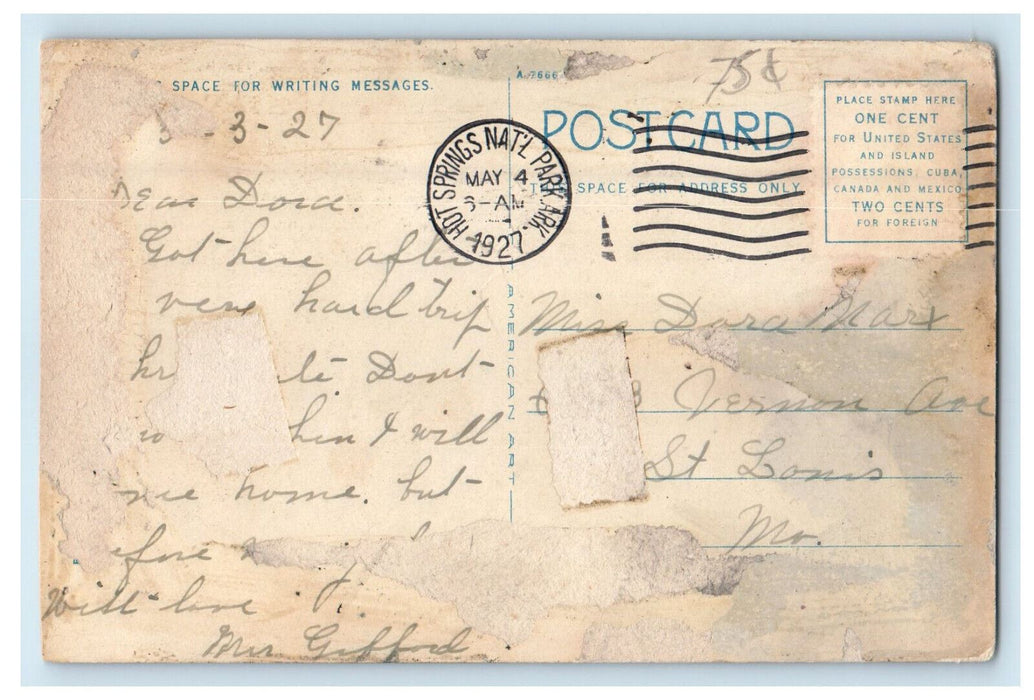 SPACE FOR WRITING MESSAGES.
A-7666
75¢
POST CARD
THE SPACE FOR ADDRESS ONLY
PLACE STAMP HERE
ONE CENT
FOR UNITED STATES
AND ISLAND
POSSESSIONS, CUBA,
CANADA AND MEXICO
TWO CENTS
FOR FOREIGN
HOT SPRINGS NAT'L PARK, ARK.
MAY 4
6-AM
1927
-3-27
Dear Dora.
Got here after
very hard trip
Dont
I will
home. but
With love
Mrs Gifford
AMERICAN ART
Miss Dora Marx
Vernon Ave
St Louis
Mo.